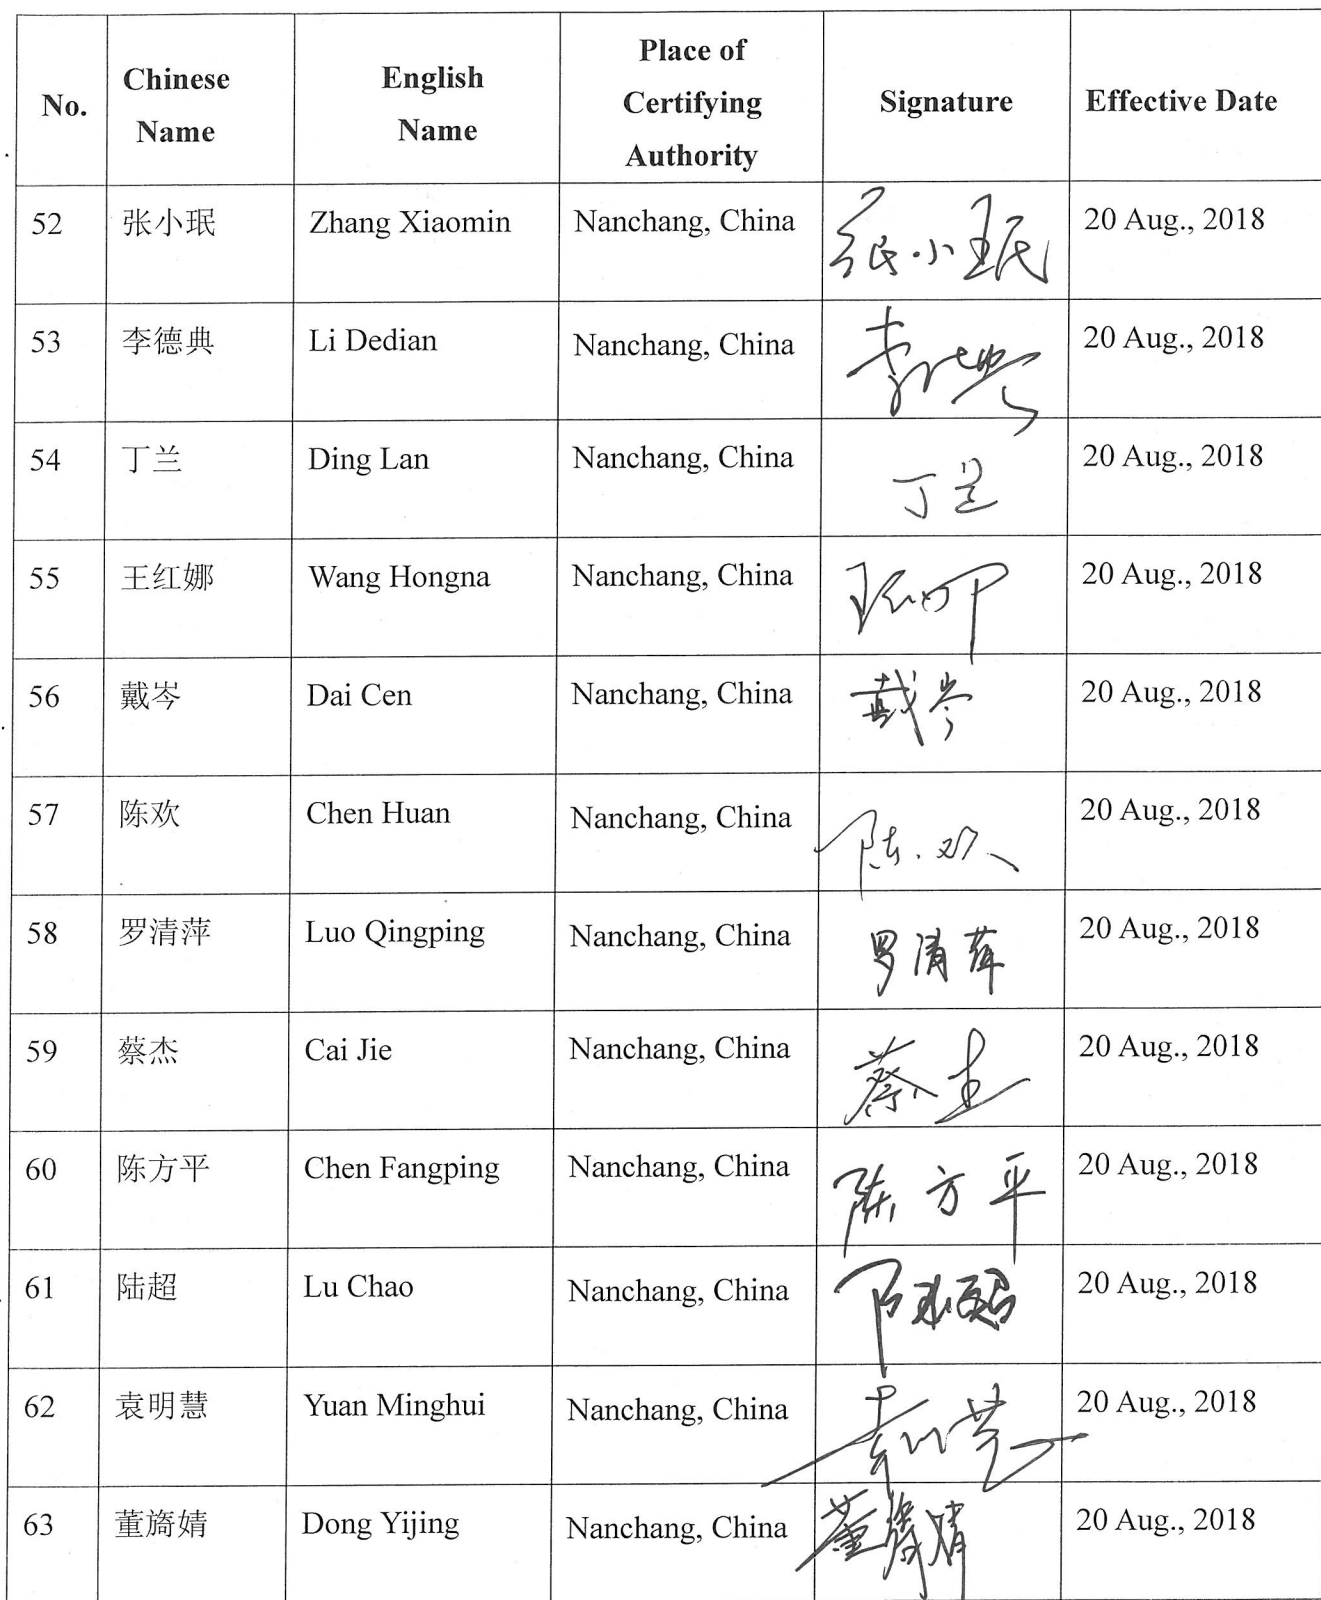 No. Chinese Name English Name Place of Certifying Authority Signature Effective Date
52 张小珉 Zhang Xiaomin Nanchang, China 张小珉 20 Aug., 2018
53 李德典 Li Dedian Nanchang, China 20 Aug., 2018
54 丁兰 Ding Lan Nanchang, China 丁兰 20 Aug., 2018
55 王红娜 Wang Hongna Nanchang, China 20 Aug., 2018
56 戴岑 Dai Cen Nanchang, China 戴岑 20 Aug., 2018
57 陈欢 Chen Huan Nanchang, China 陈欢 20 Aug., 2018
58 罗清萍 Luo Qingping Nanchang, China 罗清萍 20 Aug., 2018
59 蔡杰 Cai Jie Nanchang, China 蔡杰 20 Aug., 2018
60 陈方平 Chen Fangping Nanchang, China 陈方平 20 Aug., 2018
61 陆超 Lu Chao Nanchang, China 20 Aug., 2018
62 袁明慧 Yuan Minghui Nanchang, China 20 Aug., 2018
63 董旖婧 Dong Yijing Nanchang, China 董旖婧 20 Aug., 2018